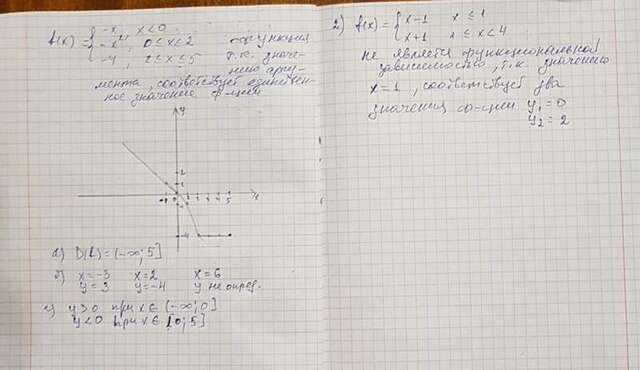 f(x) = { -x, x<0
-x², 0≤x≤2 функция
-4, 2≤x≤5 т.к. значе-
нию аргу-
мента, соответствует единствен-
ное значение ф-ции
y
2
1
-1 0 1 2 3 4 5 x
-4
а) D(f) = (-∞; 5]
б) x=-3 x=2 x=6
y=3 y=-4 y не опред.
y>0 при x∈ (-∞; 0]
y<0 при x∈ [0; 5]
2) f(x) = { x-1 x≤1
x+1 1≤x<4
не является функциональной
зависимостью, т.к. значению
x=1, соответствует два
значения ф-ции y₁=0
y₂=2